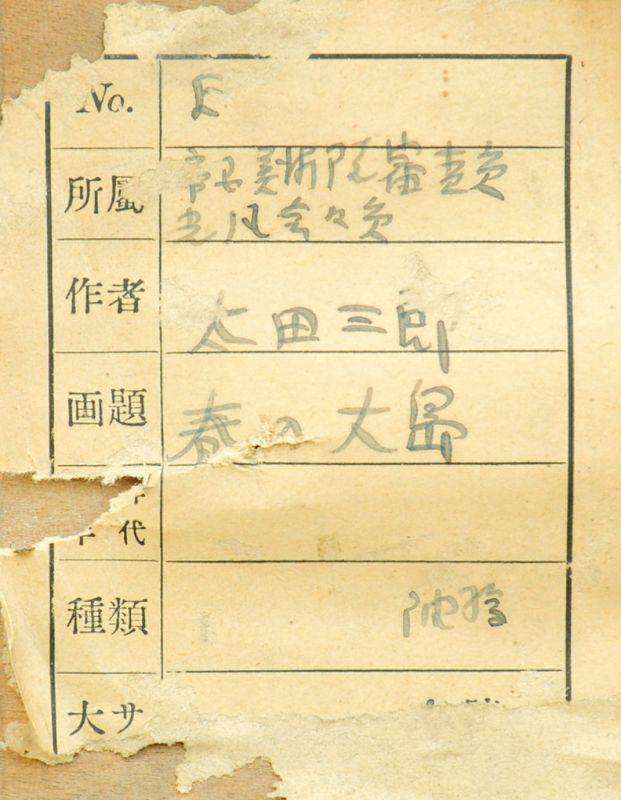 No. E
所属 帝国美術院審査員
光風会々員
作者 太田三郎
画題 春の大島
年代
種類 油絵
大サ